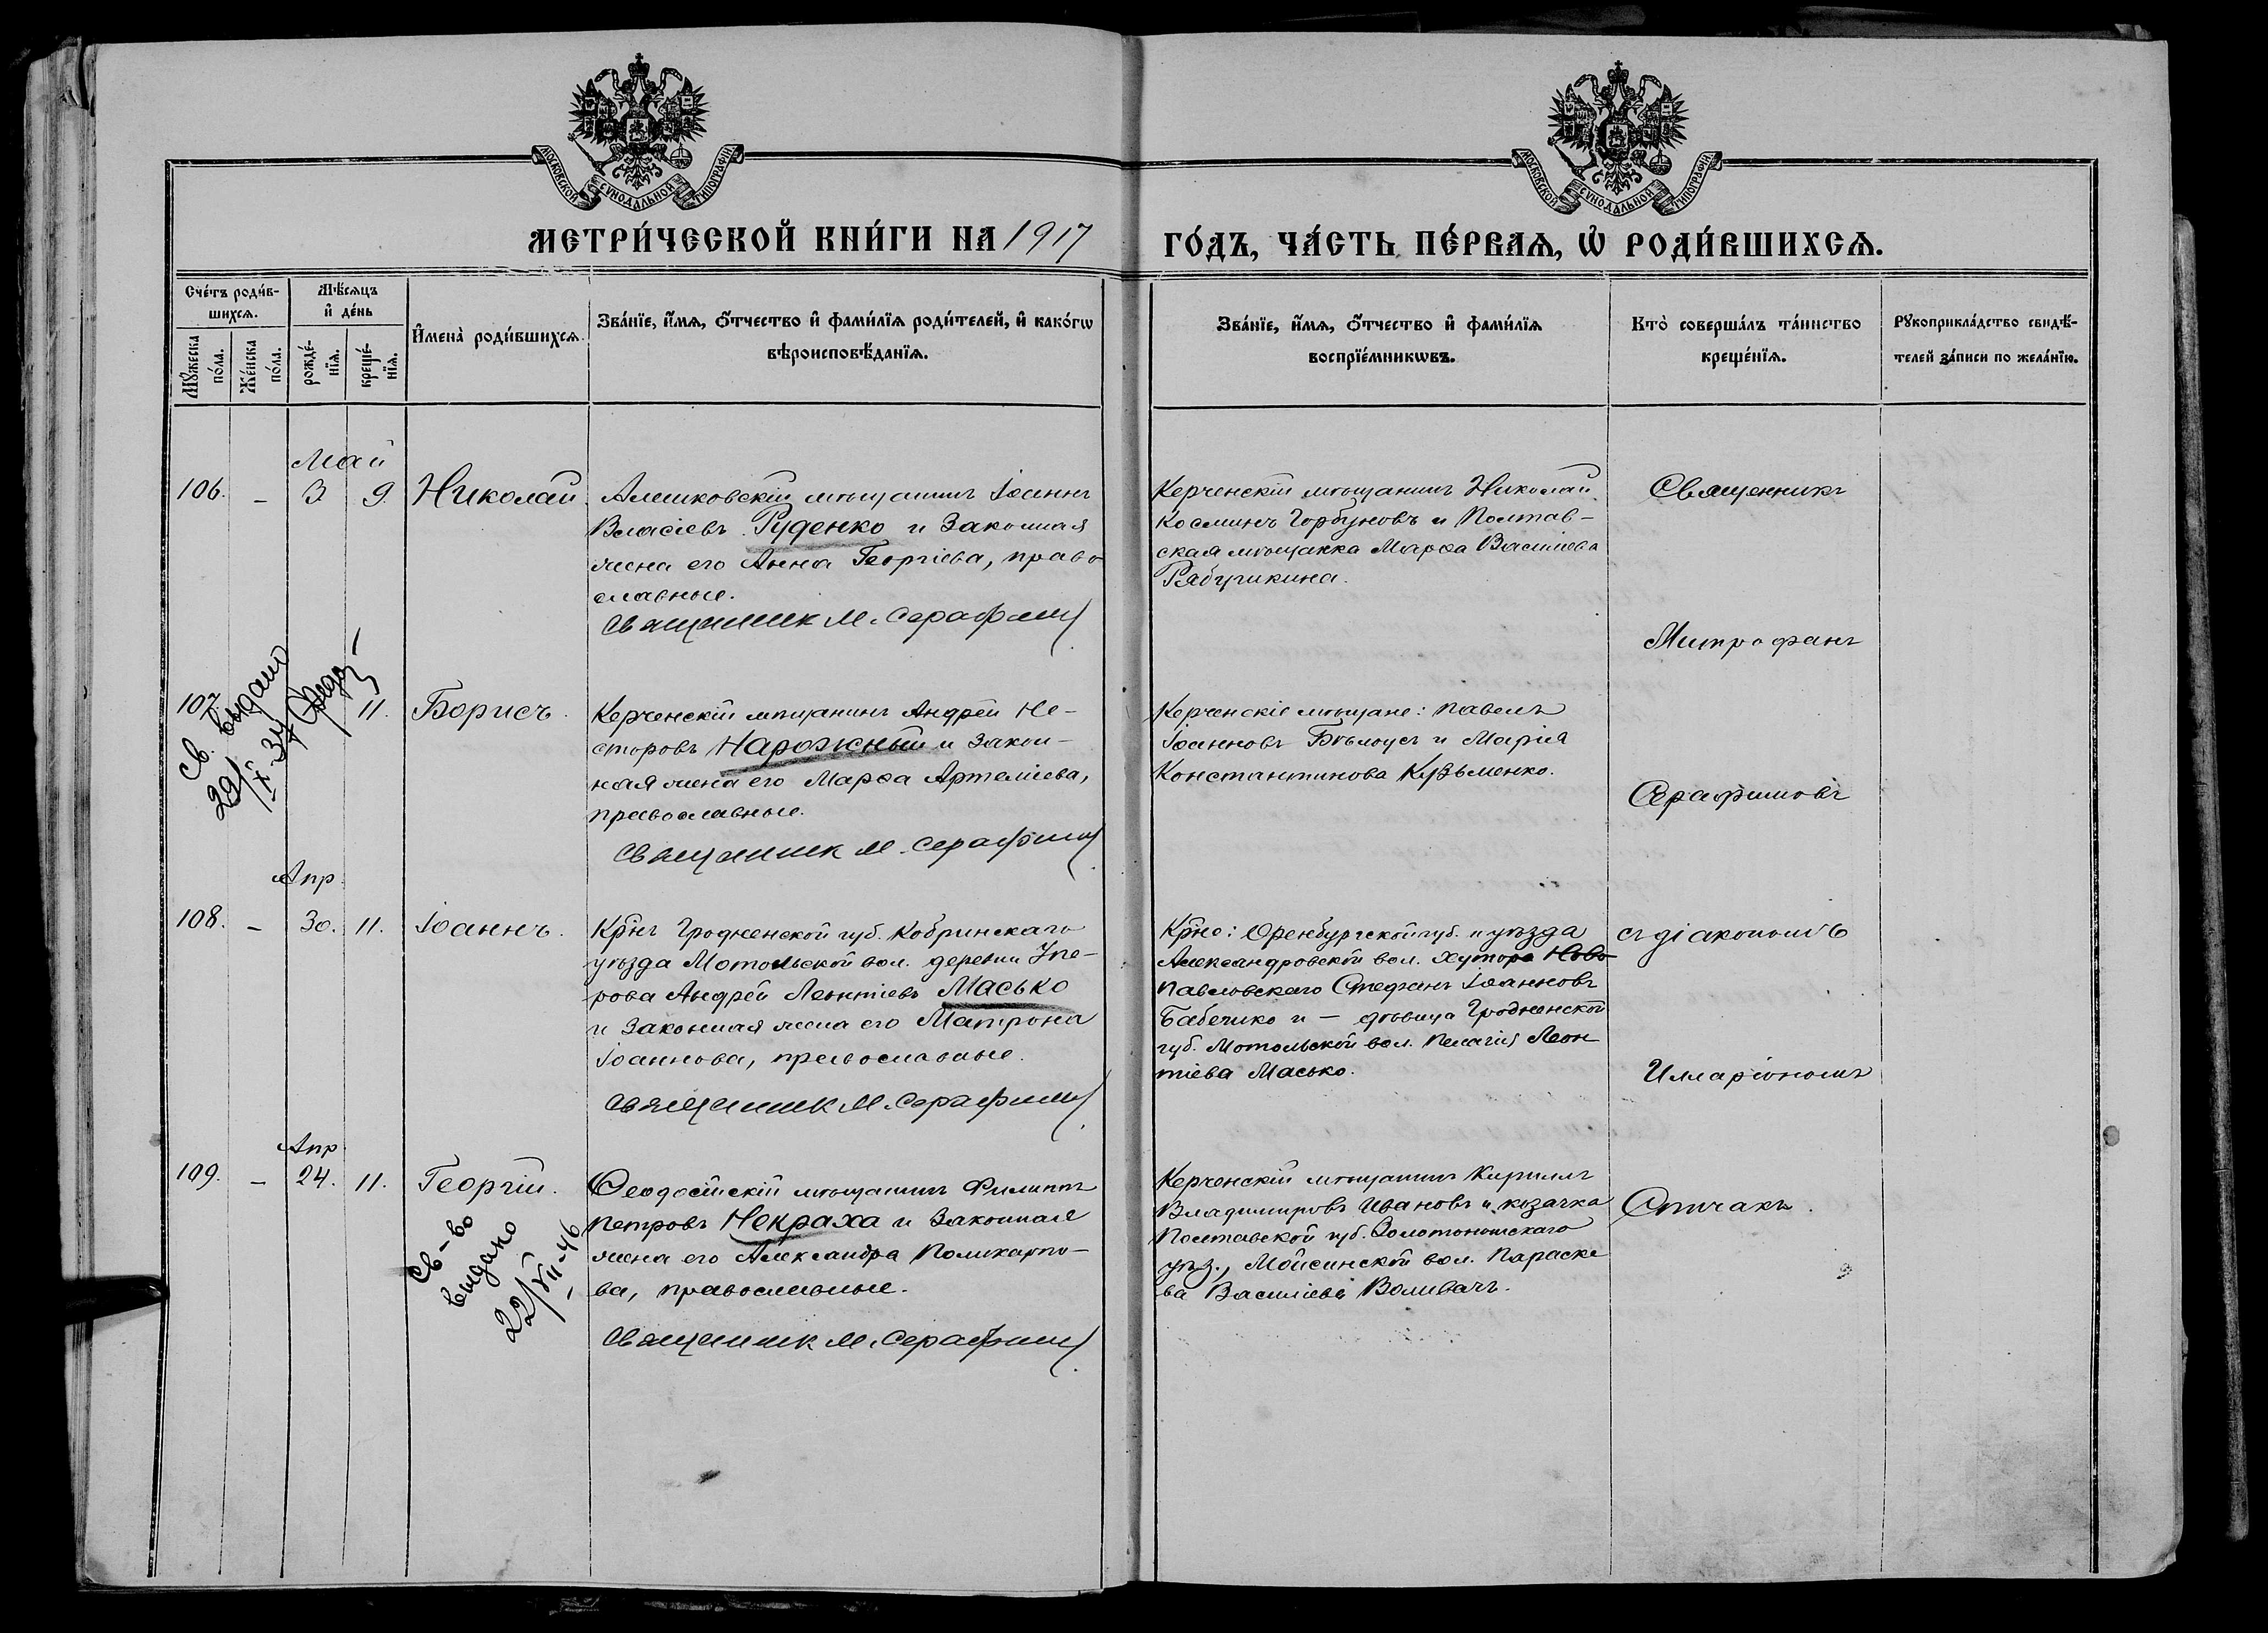 МОСКОВСКОЙ СѴНОДАЛЬНОЙ ТИПОГРАФІИ
МОСКОВСКОЙ СѴНОДАЛЬНОЙ ТИПОГРАФІИ
МЕТРИ́ЧЕСКОЙ КНИ́ГИ НА 1917
ГО́ДЪ, ЧА́СТЬ ПЕ́РВАЯ, Ѡ РОДИ́ВШИХСЯ.
Сче́тъ роди́в-
шихся.
Мꙋжеска
по́ла.
Же́нска
по́ла.
Мѣ́сяцъ
и҆ де́нь
рожде́-
нїя.
креще́-
нїя.
И҆мена̀ роди́вшихся.
Зва́нїе, и҆́мя, ѻ҆́тчество и҆ фами́лїя роди́телей, и҆ како́гѡ
вѣроисповѣ́данїя.
Зва́нїе, и҆́мя, ѻ҆́тчество и҆ фами́лїя
воспрїе́мникѡвъ.
Кто̀ соверша́лъ та́инство
креще́нїя.
Рꙋкоприкла́дство свидѣ́-
телей за́писи по жела́нїю.
Май
106. – 3 9. Николай
Алешковскій мѣщанинъ Іоаннъ
Власіевъ Руденко и законная
жена его Анна Георгіева, право
славные.
Священник М. Серафим
Керченскій мѣщанинъ Николай
Косминъ Горбуновъ и Полтав-
ская мѣщанка Марѳа Василіева
Рябушкина.
Священникъ
Митрофанъ
107. 11. Борисъ.
Св. выдано
29/IX 34
Керченскій мѣщанинъ Андрей Не-
сторовъ Нарожный и закон-
ная жена его Марѳа Артеміева,
православные.
Священник М. Серафим
Керченскіе мѣщане: Павелъ
Іоанновъ Бѣлоусъ и Марія
Константинова Кузьменко.
Серафимовъ
Апр.
108. – 30. 11. Іоаннъ.
Крнъ Гродненской губ. Кобринскаго
уѣзда Мотольской вол. деревни
рова Андрей Леонтіевъ Масько
и законная жена его Матрона
Іоаннова, православные.
Священник М. Серафим
Крнe: Оренбургской губ. и уѣзда
Александровской вол. хутора Ново-
павловскаго Стефанъ Іоанновъ
и – дѣвица Гродненской
губ. Мотольской вол. Пелагія Леон
тіева Масько.
съ діакономъ
Илларіономъ
Апр.
109. – 24. 11. Георгій.
Св-во
выдано
22/VII-46
Ѳеодосійскій мѣщанинъ Филиппъ
Петровъ Некраха и законная
жена его Александра Поликарпо-
ва, православные.
Священник М. Серафим
Керченскій мѣщанинъ Кириллъ
Владимировъ Ивановъ и козачка
Полтавской губ. Золотоношскаго
уѣз., Мойсинской вол. Параске
ва Василіева Воливачъ.
Спичакъ.